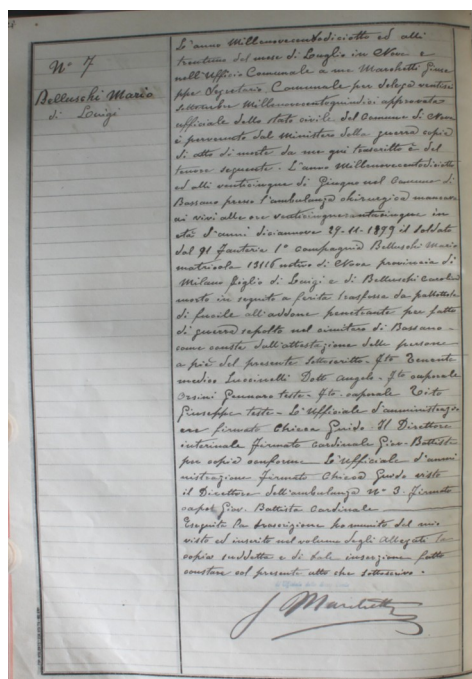 N° 7
Belluschi Mario
di Luigi
L'anno Millenovecentodiciotto ed alli
trentuno del mese di Luglio in Nova e
nell'Ufficio Comunale a me Marchetti Giuse
ppe Segretario Comunale per delega ventuno
settembre Millenovecentoquindici approvata
ufficiale dello stato civile del Comune di Nova
è pervenuto dal Ministero della guerra copia
di atto di morte da me qui trascritto e del
tenore seguente. L'anno Millenovecentodiciotto
ed alli venticinque di Giugno nel Comune di
Bassano presso l'ambulanza chirurgica mancava
ai vivi alle ore venticinque in
età d'anni diciannove 27-11-1899 il soldato
dal 91 fanteria 1° compagnia Belluschi Mario
matricola 13116 nativo di Nova provincia di
Milano figlio di Luigi e di Belluschi Carolina
morto in seguito a ferita trasfossa da pallottola
di fucile all'addome penetrante per fatto
di guerra sepolto nel cimitero di Bassano
come consta dall'attestazione delle persone
a piè del presente sottoscritto - Fto Tenente
medico Dott Angelo - Fto caporale
Orsini Gennaro teste - Fto caporale Tito
Giuseppe teste - L'Ufficiale d'amministrazio
ne firmato Chiesa Guido - Il Direttore
interinale firmato Cardinale Giov. Battista
per copia conforme L'Ufficiale d'ammi
nistrazione firmato Chiesa Guido visto
il Direttore dell'ambulanza N° 3. firmato
Giov. Battista Cardinale
Eseguita la trascrizione ho munito del mio
visto ed inserito nel volume degli Allegati la
copia suddetta e di tale inserzione fatto
constare col presente atto che sottoscrivo.
G Marchetti